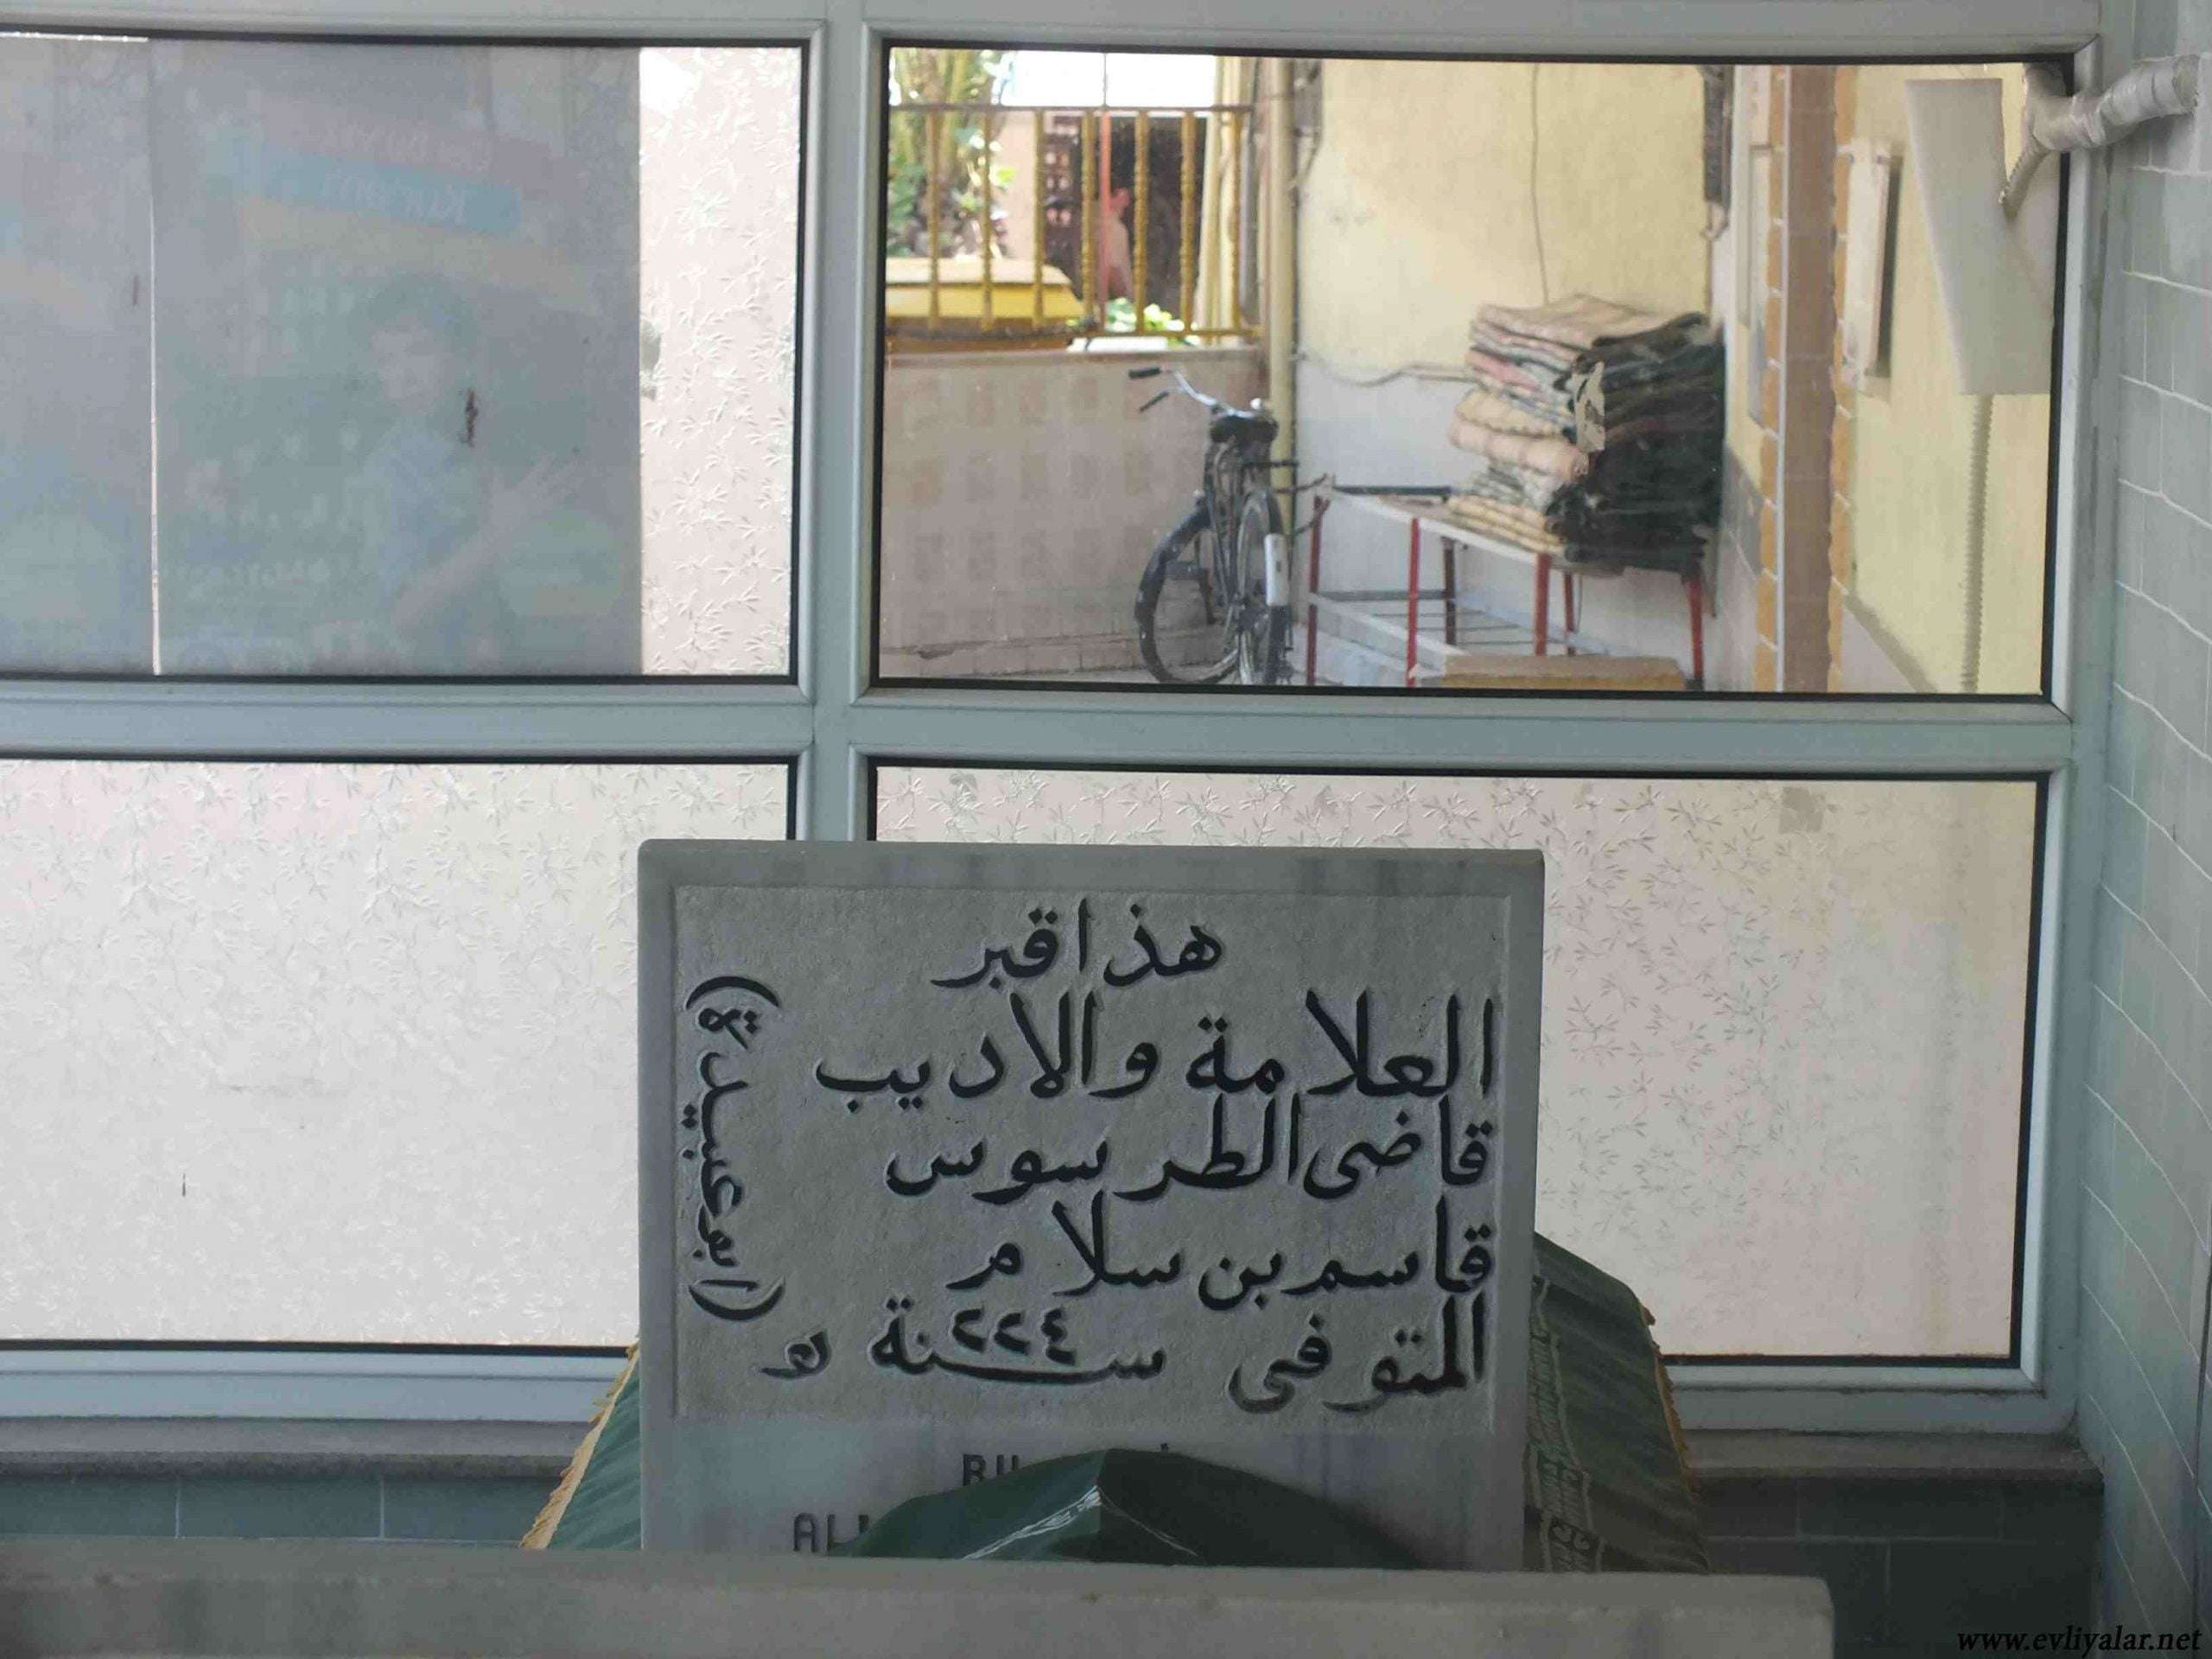 هذا قبر
العلامة والاديب
قاضى الطرسوس
قاسم بن سلام
المتوفى سنة ٢٢٤ ه
(ابو عبيدة)
BU
www.evliyalar.net